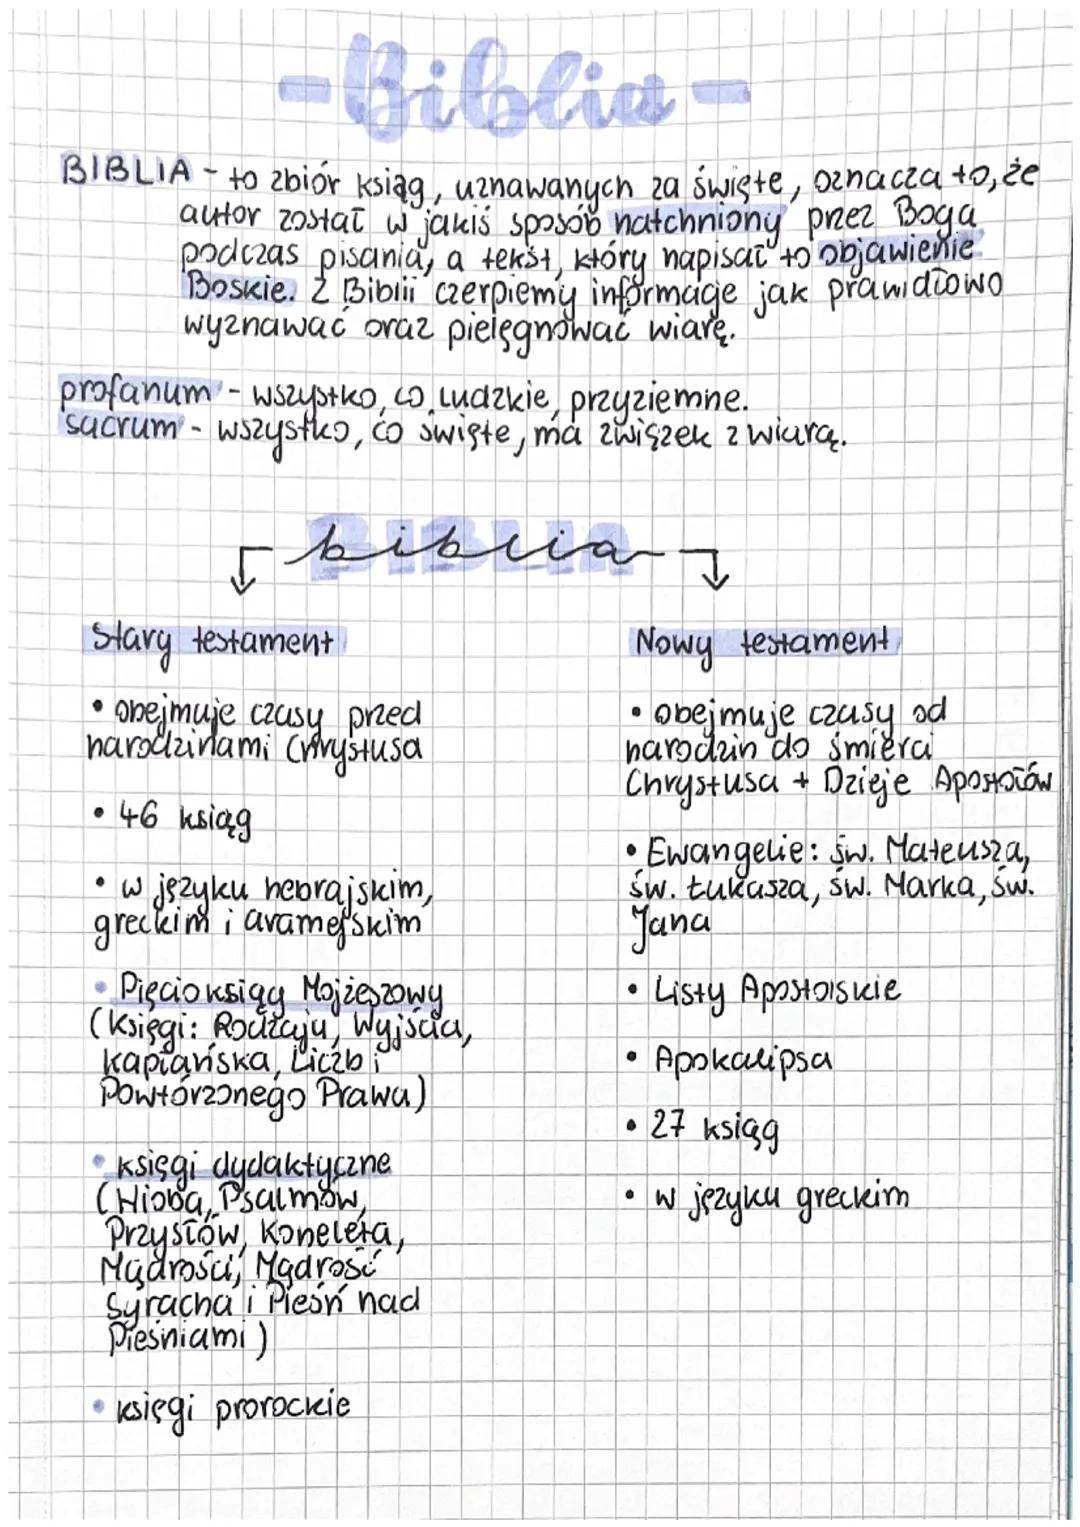 -Biblia-
BIBLIA - to zbiór ksiąg, uznawanych za święte, oznacza to, że
autor został w jakiś sposób natchniony przez Boga
podczas pisania, a tekst, który napisał to objawienie
Boskie. Z Biblii czerpiemy informacje jak prawidłowo
wyznawać oraz pielęgnować wiarę.
profanum - wszystko, co ludzkie, przyziemne.
sacrum - wszystko, co święte, ma związek z wiarą.
biblia
Stary testament
• obejmuje czasy przed
narodzinami Chrystusa
• 46 ksiąg
• w języku hebrajskim,
greckim i aramejskim
• Pięcioksiąg Mojżeszowy
(Księgi: Rodzaju, Wyjścia,
Kapłańska, Liczb i
Powtórzonego Prawa)
• księgi dydaktyczne
(Hioba, Psalmów,
Przysłów, Koheleta,
Mądrości, Mądrość
Syracha i Pieśń nad
Pieśniami)
• księgi prorockie
Nowy testament
• obejmuje czasy od
narodzin do śmierci
Chrystusa + Dzieje Apostołów
• Ewangelie: św. Mateusza,
św. Łukasza, św. Marka, św.
Jana
• Listy Apostolskie
• Apokalipsa
• 27 ksiąg
• w języku greckim